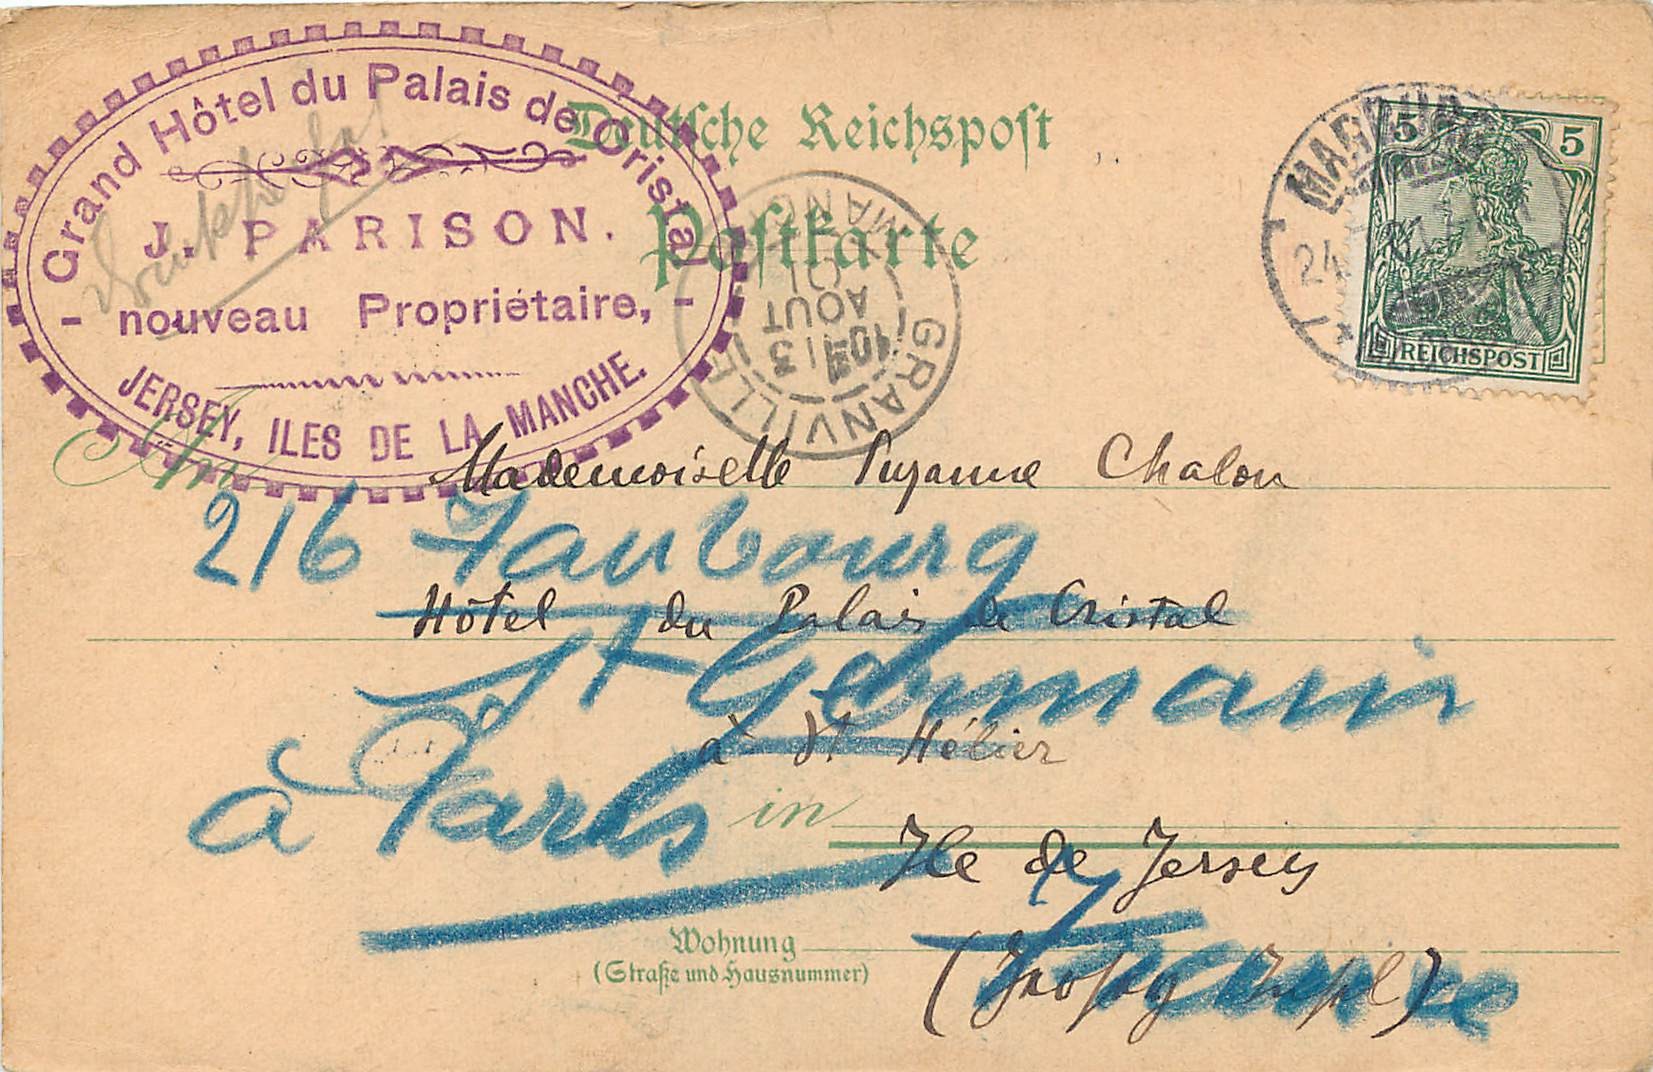 Grand Hôtel du Palais de Cristal
J. PARISON.
nouveau Propriétaire,
JERSEY, ILES DE LA MANCHE.
Deutsche Reichspost
Postkarte
GRANVILLE
MANCHE
10
13
AOUT
01
MARBURG
24
5
5
REICHSPOST
An
Mademoiselle Suzanne Chalon
216 Faubourg
Hôtel du Palais de Cristal
St Germain
à St Hélier
à Paris
in
Ile de Jersey
France
Wohnung
(Straße und Hausnummer)